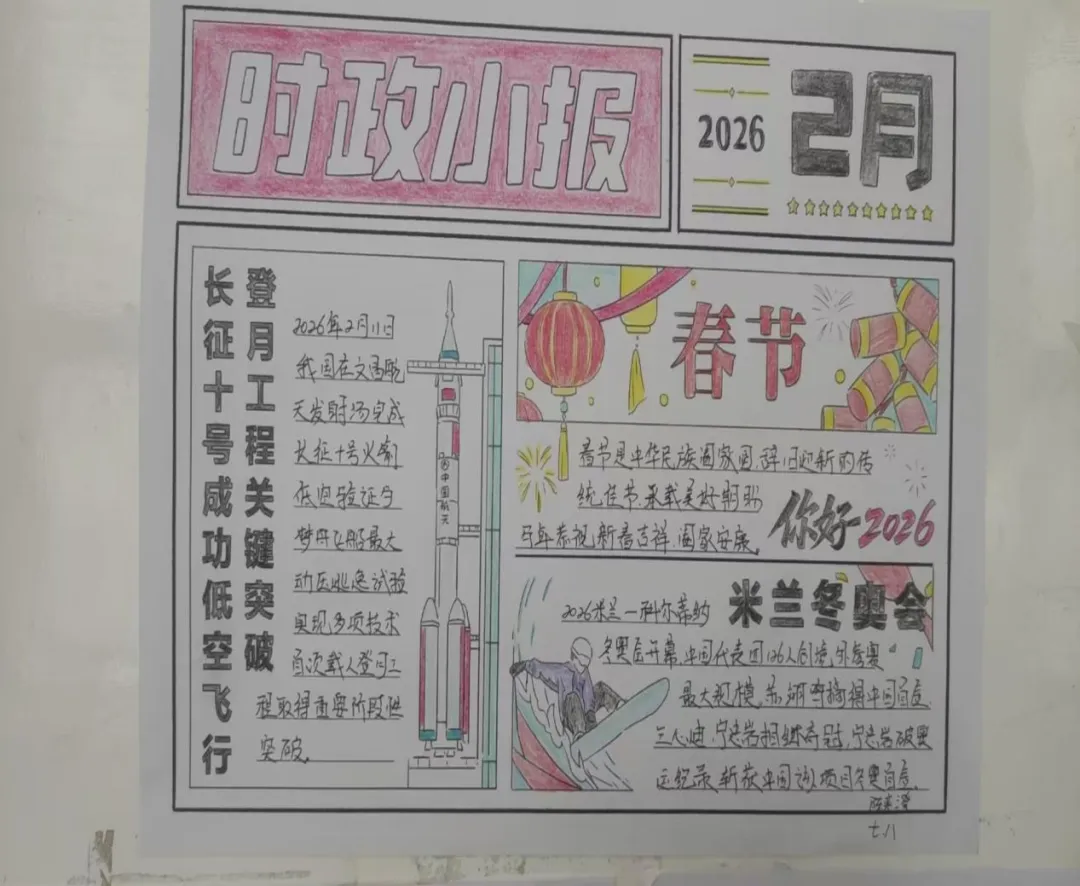 时政小报
2026
2月
登月工程关键突破
长征十号成功低空飞行
2026年2月11日
我国在文昌航
天发射场完成
长征十号火箭
低空验证与
梦舟飞船最大
动压逃逸试验
实现多项技术
首次载人登月工
程取得重要阶段性
突破.
中国航天
春节
春节是中华民族阖家团圆,辞旧迎新的传
统佳节.承载美好期盼
马年恭祝新春吉祥,阖家安康.
你好2026
米兰冬奥会
2026米兰一科尔蒂纳
冬奥会开幕,中国代表团126人创境外参赛
最大规模.苏翊鸣摘得中国首金.
宁忠岩相继夺冠,宁忠岩破奥
运纪录,斩获中国该项目冬奥首金.
七八